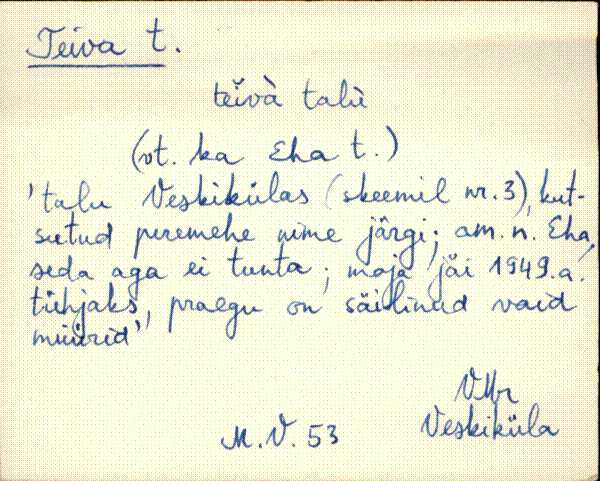 Teiva t.
teivà talù
(vt. ka Eha t.)
'talu Veskikülas (skeemil nr. 3), kut-
sutud peremehe nime järgi; am. n. Eha,
seda aga ei tunta; maja jäi 1949. a.
tühjaks, praegu on säilinud vaid
müürid'
VMr
M. V. 53 Veskiküla